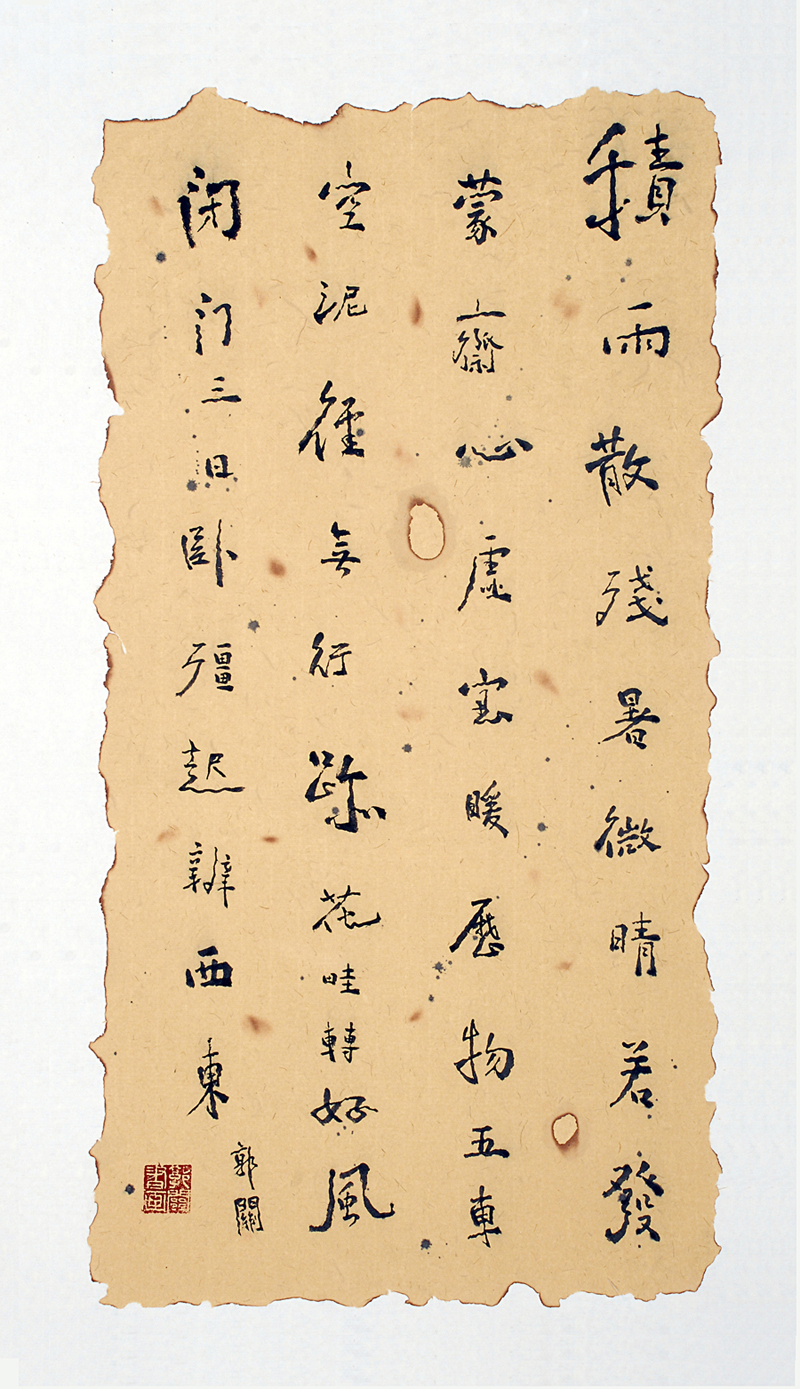 積雨散殘暑微晴若發
蒙齋心虛室暖歷物五車
空泥徑無行跡花畦轉好風
閉門三日臥殭起辨西東
郭關